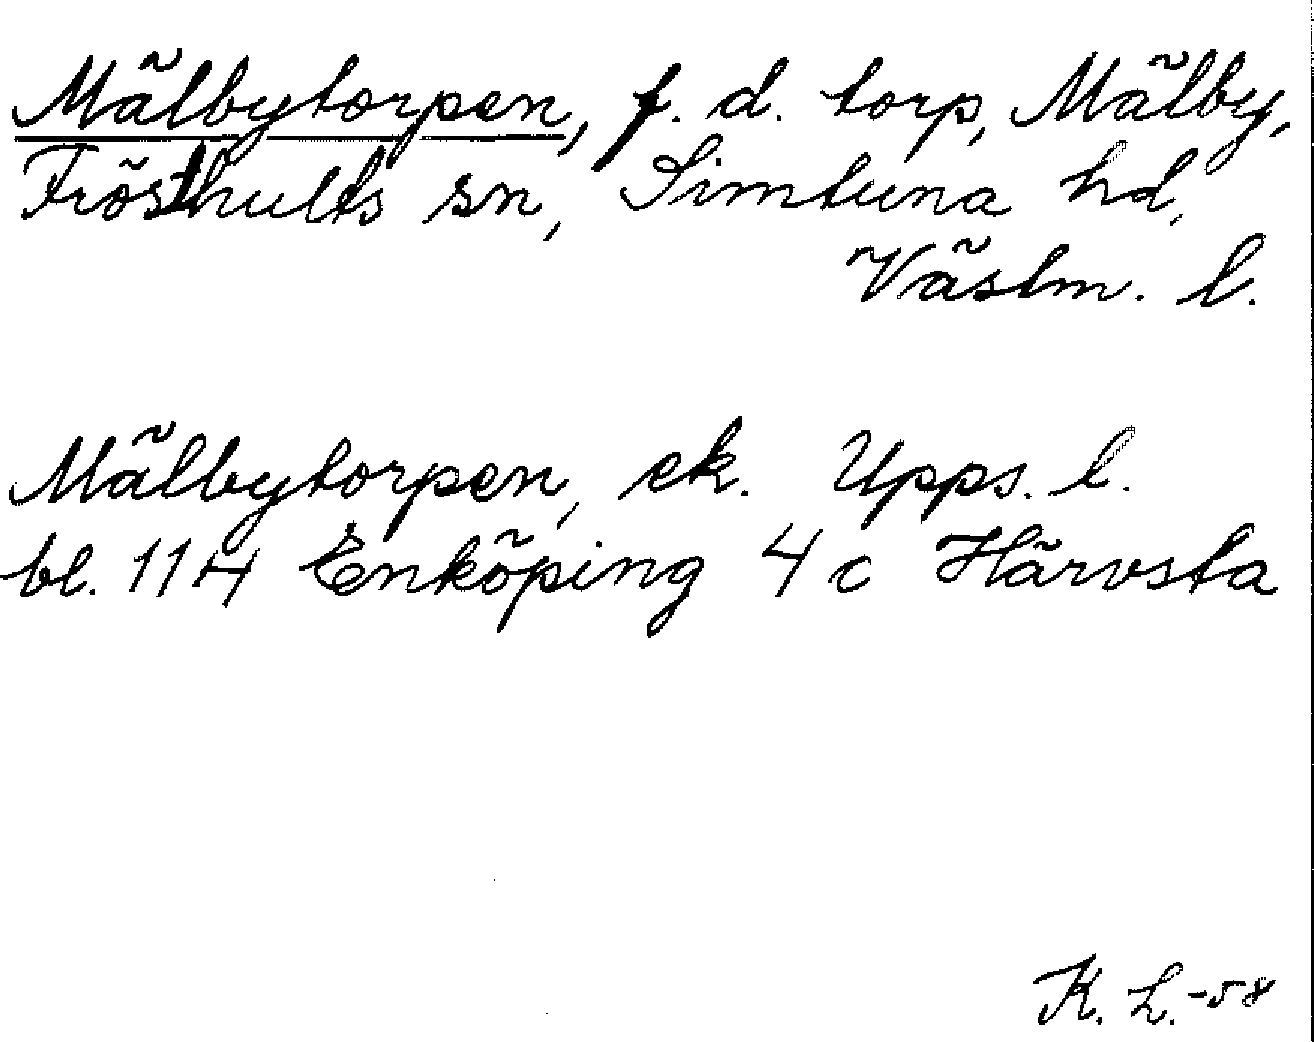 Mälbytorpen, f. d. torp, Mälby,
Frösthults sn, Simtuna hd,
Västm. l.
Mälbytorpen, ek. Upps. l.
bl. 11H Enköping 4 c Härvsta
K. L.-58